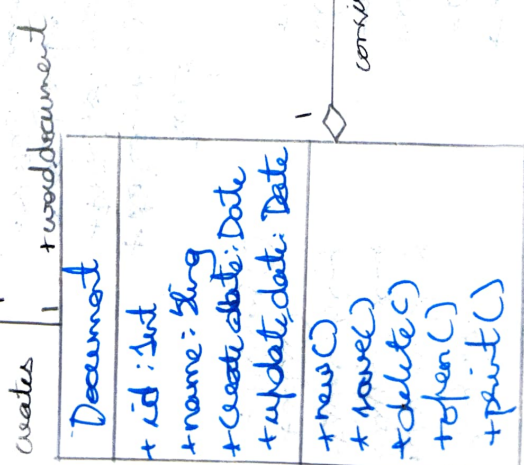 creates
1
+ word document
Document
+ id : Int
+ name : String
+ create date : Date
+ update date : Date
+ new ( )
+ save ( )
+ delete ( )
+ open ( )
+ print ( )
1